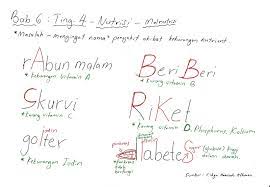 Bab 6 : Ting. 4 - Nutrisi -
* Masalah - mengingat nama² penyakit akibat kekurangan nutrient.
rAbun malam
* kekurangan vitamin A
BeriBeri
* kurang vitamin B
Skurvi
* kurang vitamin C
RiKet
* kurang vitamin D, Phosphorus, Kalsium
iodin
goiter
* Kekurangan Iodin
DiabeteS
tinggi
dalam darah
Sumber : Cikgu